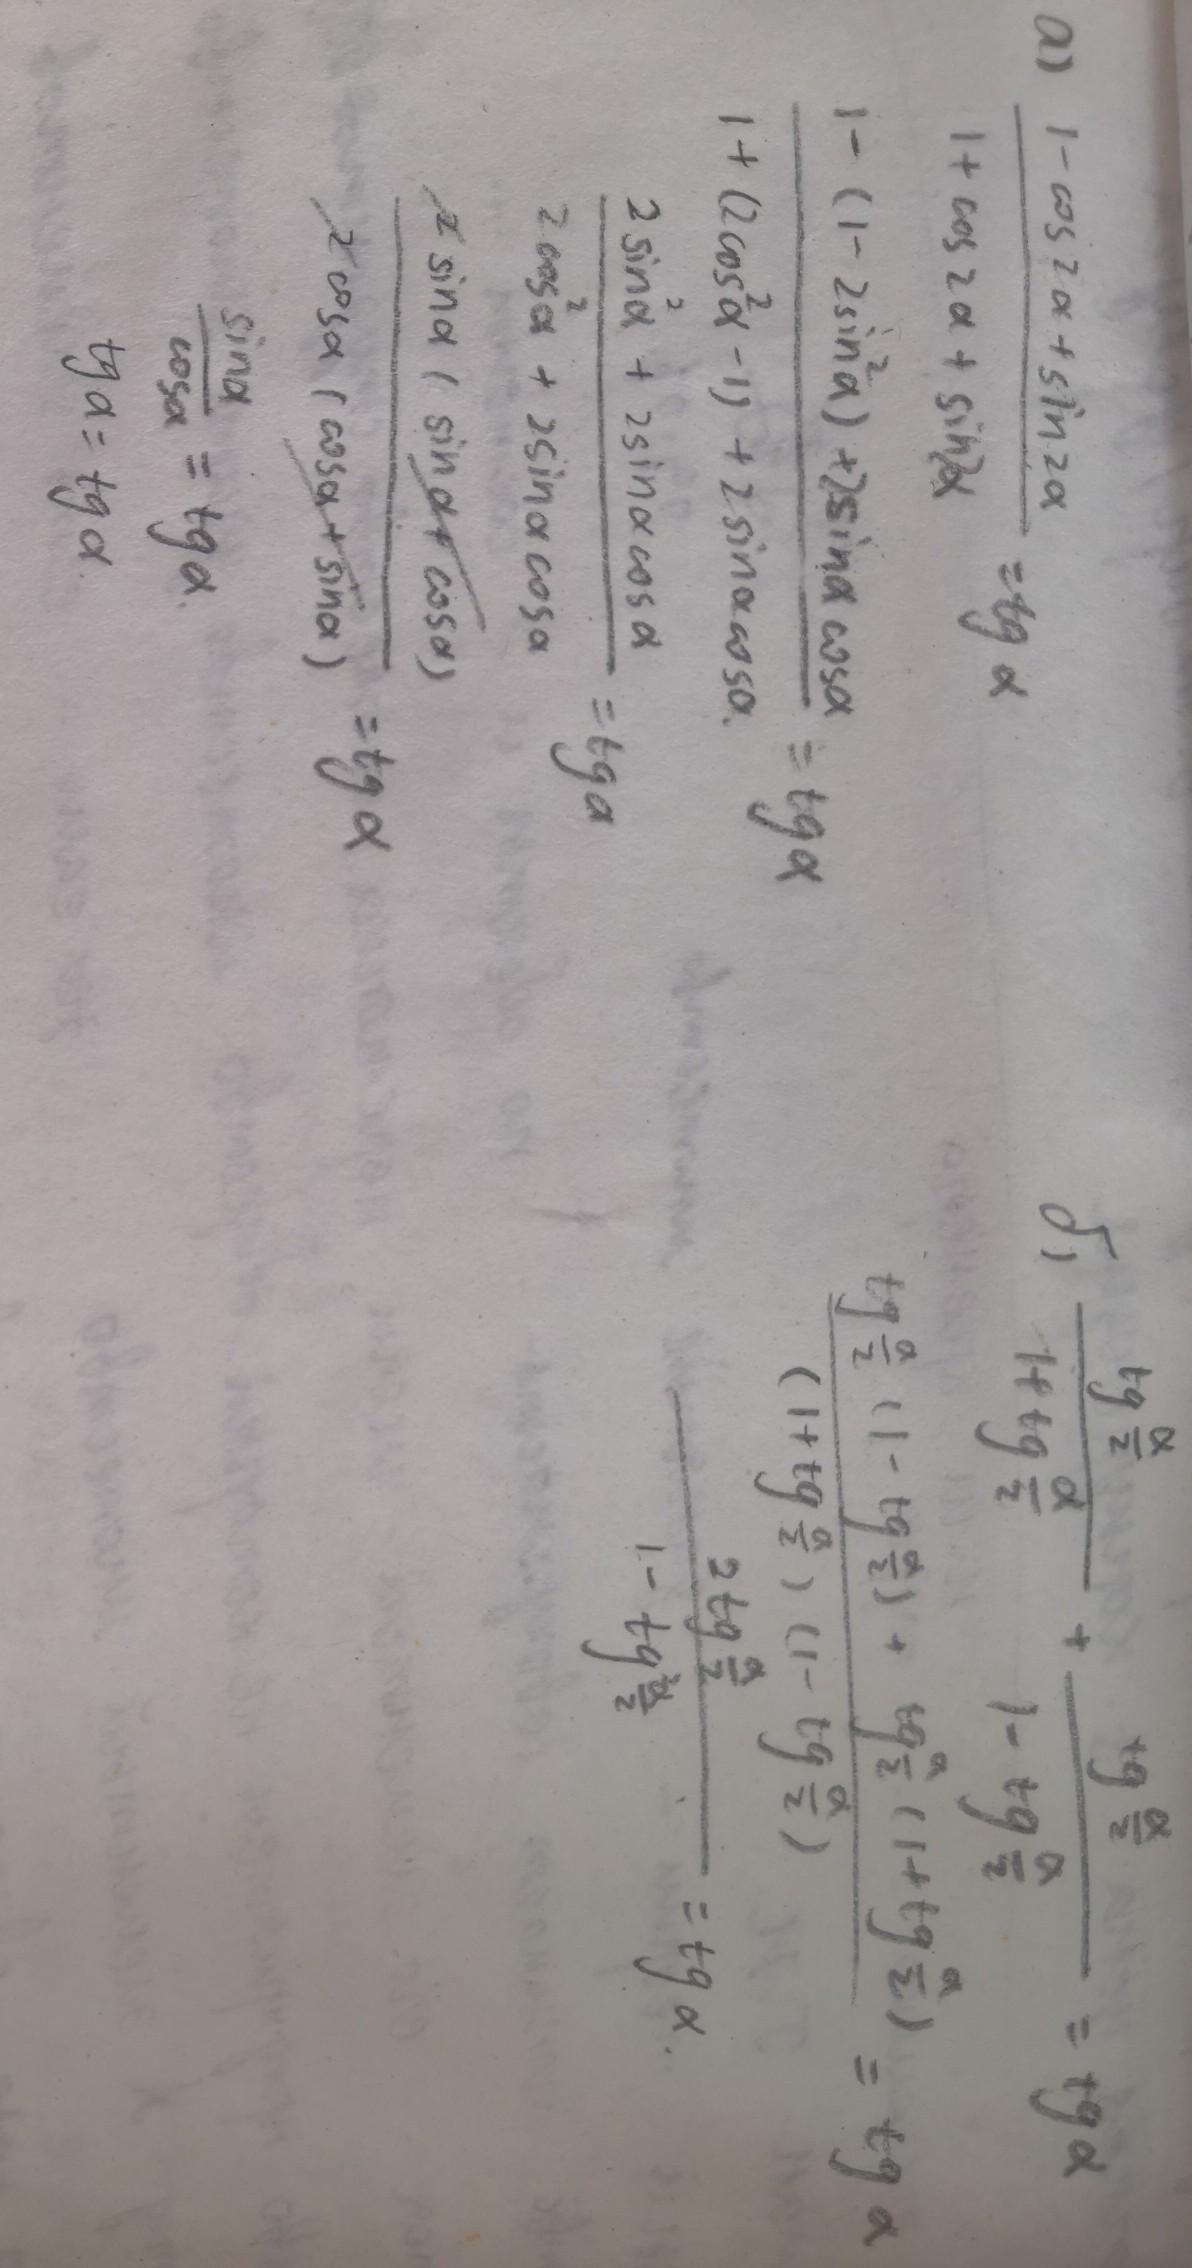 а) (1 - cos 2α + sin 2α) / (1 + cos 2α + sin 2α) = tg α
(1 - (1 - 2sin²α) + 2sinα cosα) / (1 + (2cos²α - 1) + 2sinα cosα.) = tg α
(2sin²α + 2sinα cosα) / (2cos²α + 2sinα cosα) = tg α
(2 sinα (sinα + cosα)) / (2 cosα (cosα + sinα)) = tg α
sinα / cosα = tg α.
tg α = tg α.
б) (tg α/2) / (1 + tg α/2) + (tg α/2) / (1 - tg α/2) = tg α
(tg α/2 (1 - tg α/2) + tg α/2 (1 + tg α/2)) / ((1 + tg α/2) (1 - tg α/2)) = tg α
(2 tg α/2) / (1 - tg² α/2) = tg α.